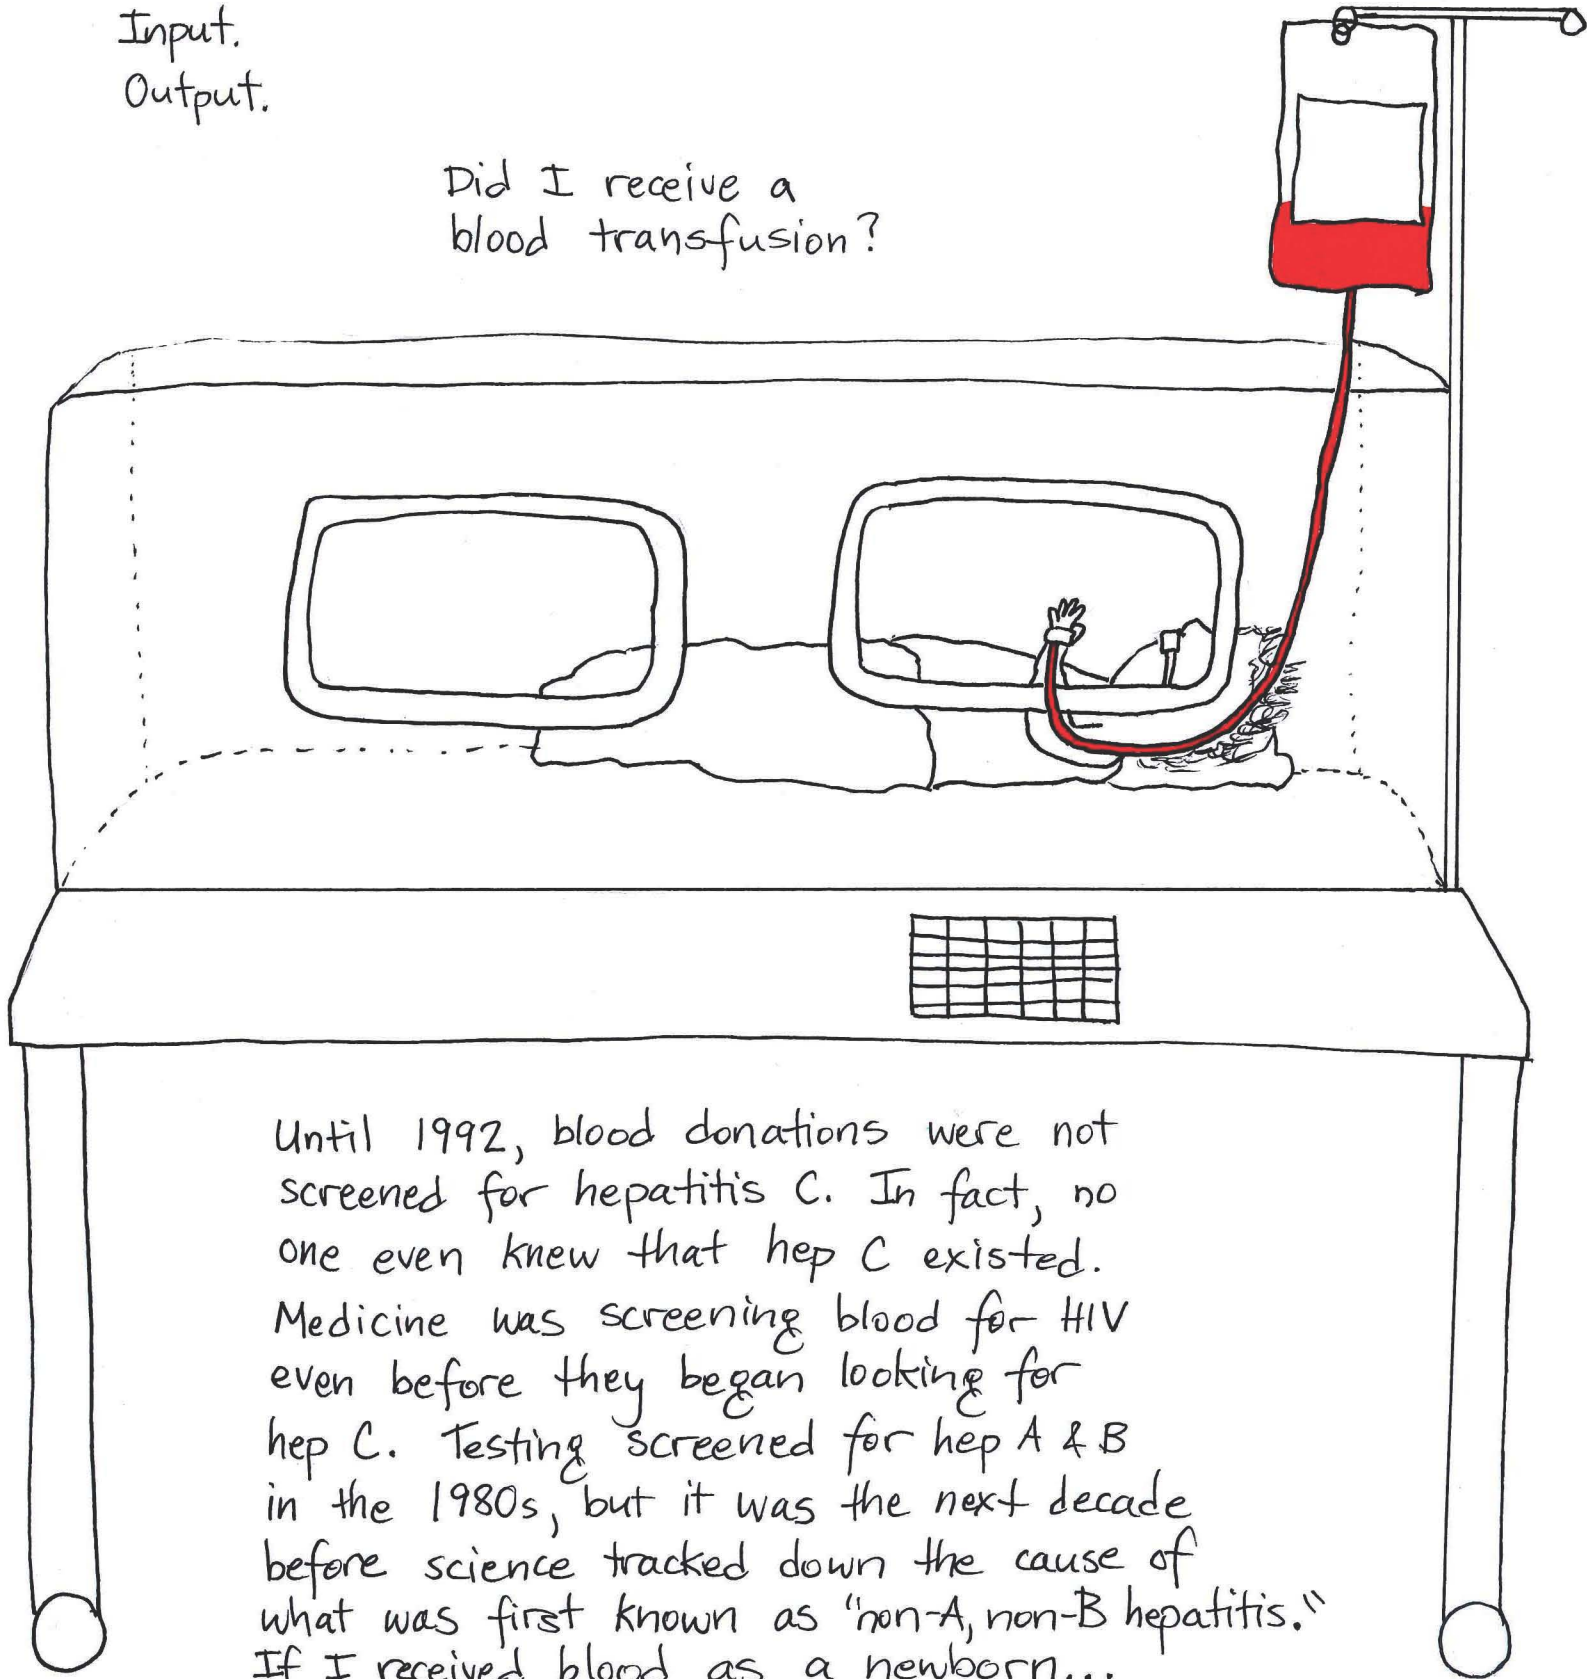 Input.
Output.
Did I receive a
blood transfusion?
Until 1992, blood donations were not
screened for hepatitis C. In fact, no
one even knew that hep C existed.
Medicine was screening blood for HIV
even before they began looking for
hep C. Testing screened for hep A & B
in the 1980s, but it was the next decade
before science tracked down the cause of
what was first known as "non-A, non-B hepatitis."
If I received blood as a newborn...